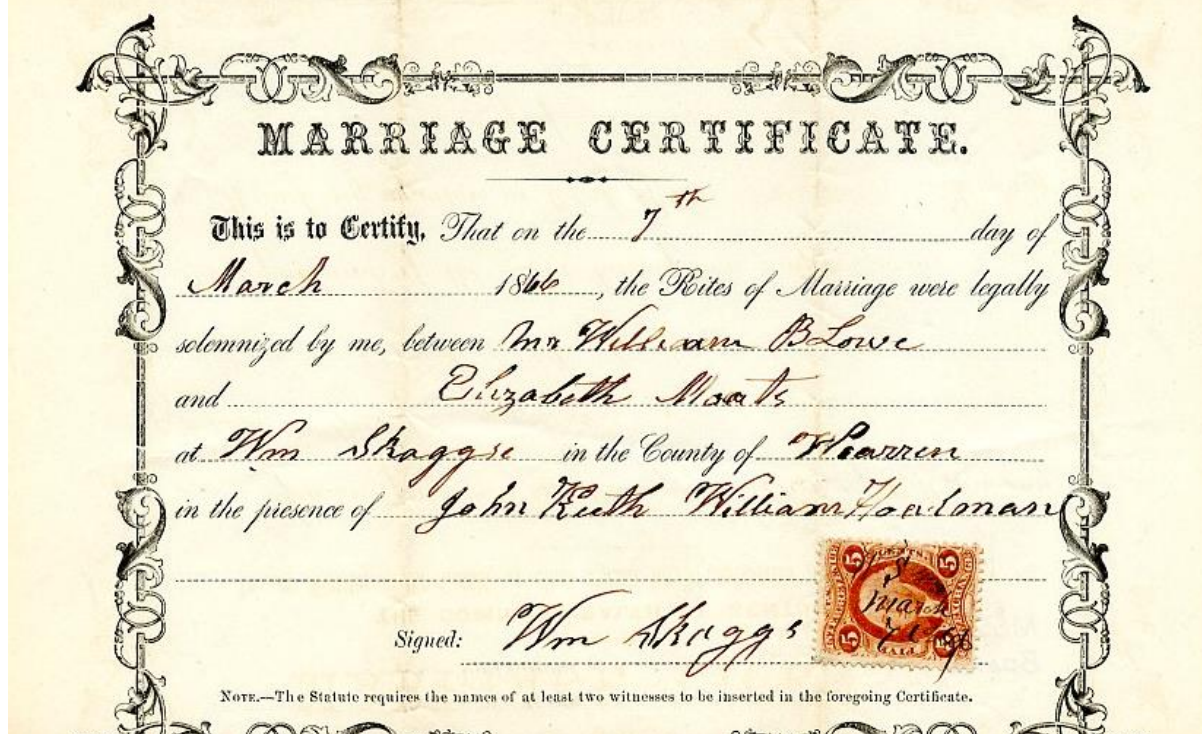 MARRIAGE CERTIFICATE.
This is to Certify, That on the 7th day of
March 1866, the Rites of Marriage were legally
solemnized by me, between Mr William B Lowe
and Elizabeth Moats
at Wm Skaggs in the County of Warren
in the presence of John Ruth William
5 CENTS 5
March
7
5 5
Signed: Wm Skaggs
NOTE.—The Statute requires the names of at least two witnesses to be inserted in the foregoing Certificate.